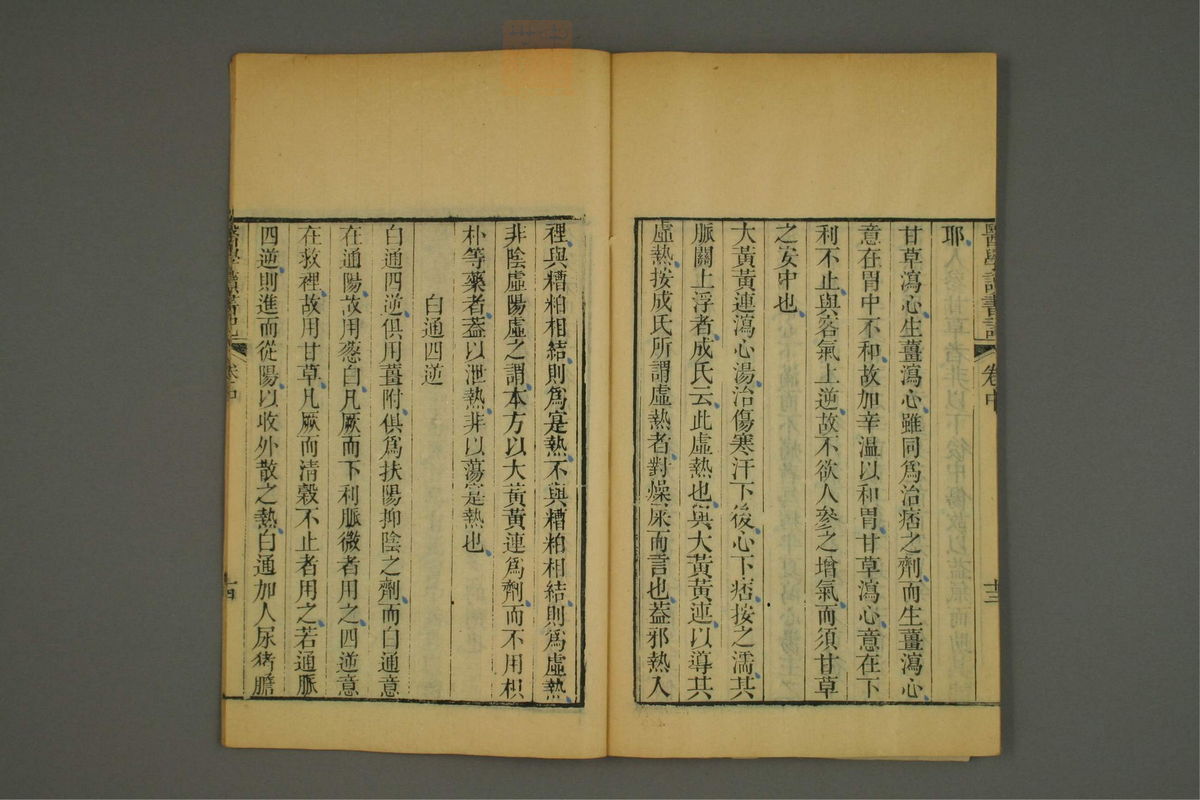 醫學讀書記
卷中
十三
耶
甘草瀉心生薑瀉心雖同爲治痞之劑而生薑瀉心
意在胃中不和故加辛温以和胃甘草瀉心意在下
利不止與客氣上逆故不欲人參之增氣而須甘草
之安中也
大黃黃連瀉心湯治傷寒汗下後心下痞按之濡其
脈關上浮者成氏云此虛熱也與大黃黃連以導其
虛熱按成氏所謂虛熱者對燥屎而言也蓋邪熱入
裡與糟粕相結則爲寔熱不與糟粕相結則爲虛熱
非陰虛陽虛之謂本方以大黃黃連爲劑而不用枳
朴等藥者蓋以泄熱非以蕩寔熱也
白通四逆
白通四逆俱用薑附俱爲扶陽抑陰之劑而白通意
在通陽故用葱白凡厥而下利脈微者用之四逆意
在救裡故用甘草凡厥而清穀不止者用之若通脈
四逆則進而從陽以收外散之熱白通加人尿猪膽
醫學讀書記
卷中
十四